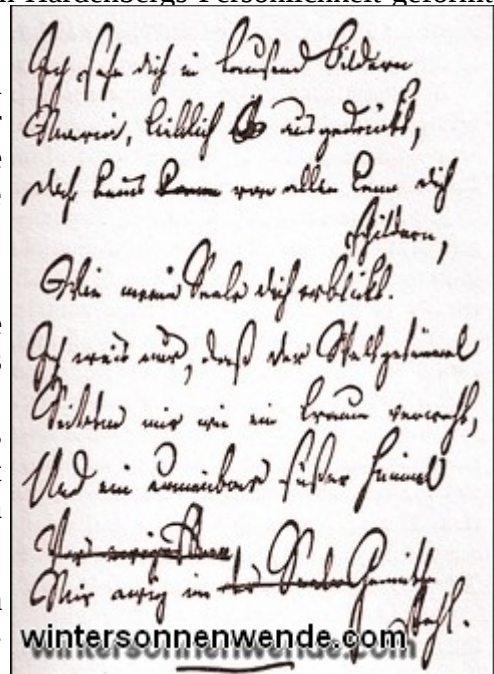 Hardenbergs Persönlichkeit geformt
Ich sehe dich in tausend Bildern
Maria, lieblich ausgedrückt,
Doch keins kann von allen kann dich
schildern,
Wie meine Seele dich erblickt.
Ich weis nur, daß der Welt Getümmel
Seitdem mir wie ein Traum verweht,
Und ein unnennbar süßer Himmel
Mir ewig im der Seele Gemüthe
steht.
wintersonnenwende.com